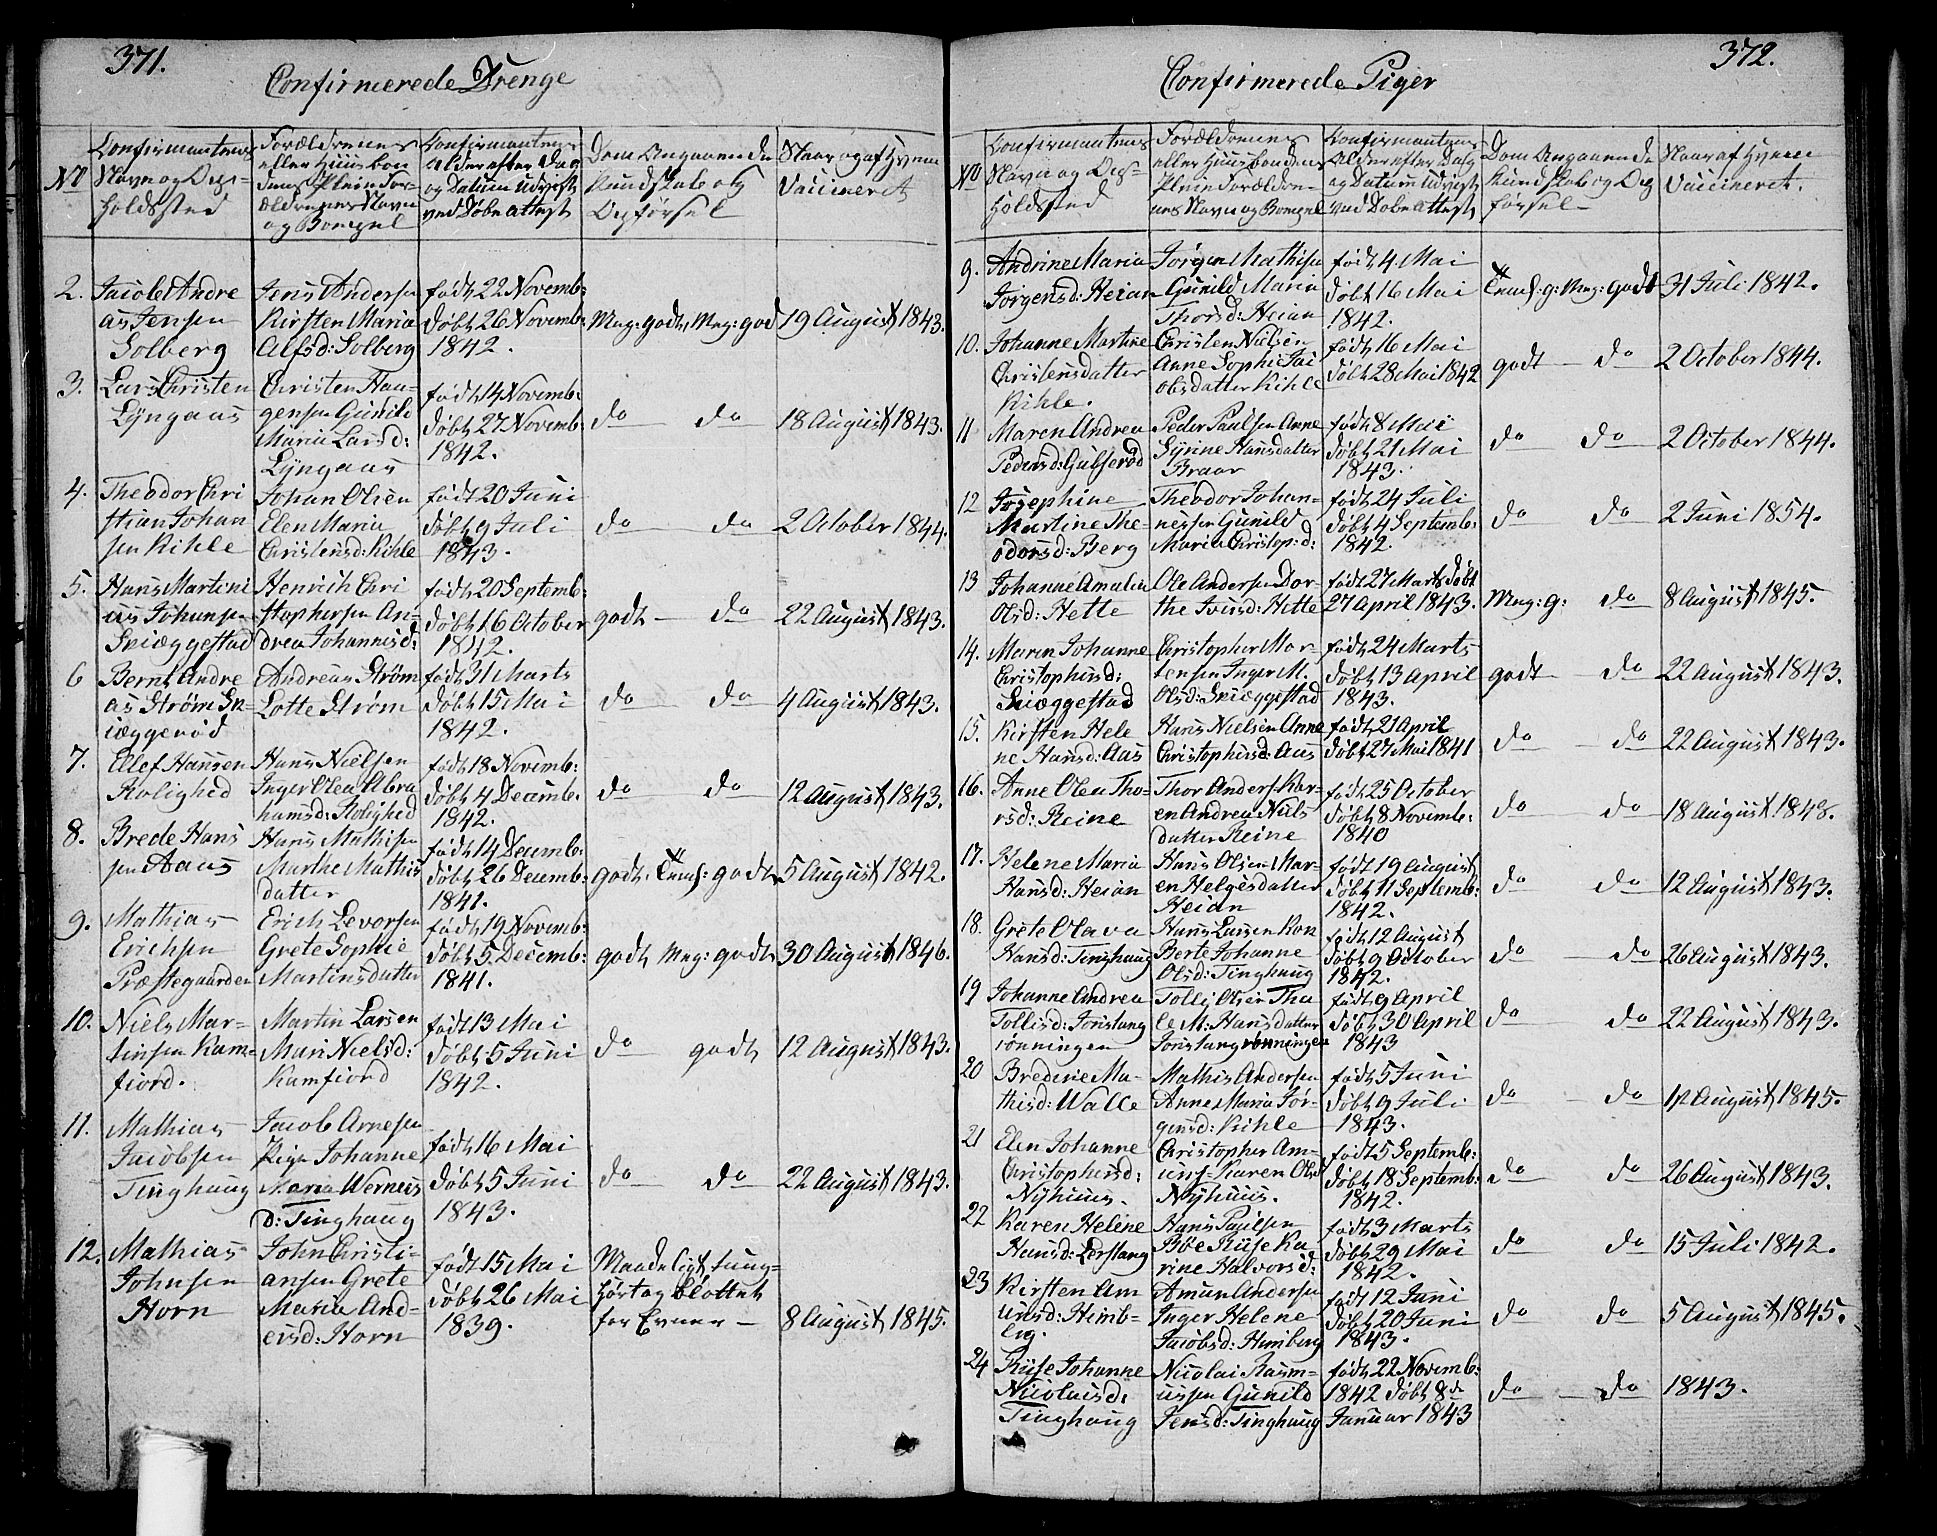 371.
Confirmerede Drenge
No
Confirmantens
Navn og Op-
holdssted
Forældrenes
eller Huusbon
dens Pleie For-
ældrenes Navn
og Bompel
Confirmantens
Alder efter Dag
og Datum Udviist
ved Døbe Attest
Dom Angaaende
Kundskab og
Opførsel
Naar og af hvem
Vaccineret
2.
Jacob Andre
as Jensen
Solberg
Jens Andersen
Kirsten Maria
Alfsd: Solberg
født 22 Novemb:
døbt 26 Novemb:
1842.
Meg: godt, Meg: god
19 August 1843.
3.
Lars Christen
Lÿngaas
Christen Haa-
gensen Gunild
Maria Larsd:
Lÿngaas
født 14 Novemb:
døbt 27 Novemb:
1842.
do do
18 August 1843.
4.
Theodor Chri
stian Johan
sen Kihle
Johan Olsen
Elen Maria
Christensd: Kihle
født 20 Juni
døbt 9 Juli
1843.
do do
2 October 1844.
5.
Hans Martini
us Johansen
Skiæggestad
Henrich Chri
stophersen An-
drea Johannisd:
født 20 Septemb:
døbt 16 October
1842.
godt do
22 August 1843.
6
Bernt Andre
as Strøm Sk
iæggerød
Andreas Strøm
Lotte Strøm
født 31 Marts
døbt 15 Mai
1842.
do do
4 August 1843.
7.
Olef Hansen
Rolighed
Hans Nielsen
Inger Olea Abra
hamsd: Rolighed
født 18 Novemb:
døbt 4 Decemb:
1842.
do do
12 August 1843.
8.
Brede Hans
sen Aaus
Hans Mathisen
Marthe Mathis
datter
født 14 Decemb:
døbt 26 Decemb:
1841.
godt, Temf: godt,
5 August 1842.
9.
Mathias
Erichsen
Præstegaarden
Erich Levorsen
Grete Sophie
Martinsdatter
født 19 Novemb:
døbt 5 Decemb:
1841.
godt, Meg: godt,
30 August 1846.
10.
Niels Mar-
tinsen Kam-
fiord.
Martin Larsen
Mari Nielsd:
Kamfiord
født 13 Mai
døbt 5 Juni
1842.
do godt
12 August 1843.
11.
Mathias
Jacobsen
Tinghaug
Jacob Arnesen
Pige Johanne
Maria Werners
d: Tinghaug
født 16 Mai
døbt 5 Juni
1843.
do do
22 August 1843.
12.
Mathias
Johnsen
Horn
John Christi-
ansen Grete
Maria And-
ersd: Horn
født 15 Mai
døbt 26 Mai
1839.
Maadeligt, tung-
hørt og blottet
for Evner
8 August 1845.
372.
Confirmerede Piger
No
Confirmantens
Navn og Op-
holdssted
Forældrenes
eller Huusbondens
Pleie Forældre-
nes Navn og Bompel
Confirmantens
Alder efter Dag
og Datum Udviist
ved Døbe Attest
Dom Angaaende
Kundskab og Op
førsel
Naar af hvem
Vaccineret.
9.
Andrine Maria
Jørgensd: Heian
Jørgen Mathisen
Gunild Maria
Thorsd: Heian
født 4 Mai
døbt 16 Mai
1842.
Temf: g: Meg: godt
31 Juli 1842.
10.
Johanne Martine
Christensdatter
Kihle.
Christen Nilsen
Anne Sophie Jac
obsdatter Kihle
født 16 Mai
døbt 28 Mai 1842
godt do
2 October 1844.
11
Maren Andrea
Pedersd: Gulserød
Peder Paulsen Anne
Sÿrine Hansdatter
Braar
født 8 Mai
døbt 21 Mai
1843.
do do
2 October 1844.
12
Josephine
Martine The-
odorsd: Berg
Theodor Johan-
nessen Gunild
Maria Christop: d:
født 24 Juli
døbt 4 Septemb:
1842.
do do
2 Juni 1854.
13
Johanne Amalia
Olsd: Hette
Ole Andersen Dor-
the Iversd: Hette
født 27 Marts døbt
27 April 1843.
Meg: g: do
8 August 1845.
14.
Maren Johanne
Christophersd:
Skiæggestad
Christopher Mor-
tensen Inger M.
Olsd: Skiæggestad
født 24 Marts
døbt 13 April
1843.
godt do
22 August 1843.
15.
Kirsten Hele
ne Hansd: Aas
Hans Nielsen Anne
Christophersd: Aas
født 21 April
døbt 27 Mai 1841
do do
22 August 1843.
16.
Anne Olea Tho-
rsd: Reine
Thor Anders Kar-
en Andrea Niels
datter Reine
født 25 October
døbt 8 Novemb:
1840
do do
18 August 1848.
17.
Helene Maria
Hansd: Heian
Hans Olsen Mar-
en Helgesdatter
Heian
født 19 August,
døbt 11 Septemb:
1842.
do do
12 August 1843.
18.
Grete Olava
Hansd: Tinghaug
Hans Larsen Kon
Berte Johanne
Olsd: Tinghaug
født 12 August
døbt 9 October
1842.
do do
26 August 1843.
19
Johanne Andrea
Tollisd: Jonstang
rønningen
Tolly Olsen Tha
le M: Hansdatter
Jonstangrønningen
født 9 April
døbt 30 April
1843
do do
22 August 1843.
20
Brederie Ma-
thisd: Walle
Mathis Andersen
Anne Maria Jør-
gensd: Kihle
født 5 Juni
døbt 9 Juli
1843.
do do
12 August 1845.
21
Elen Johanne
Christophersd:
Nÿhuus.
Christopher Am-
unss. Karen Olsd
Nÿhuus.
født 5 Septemb:
døbt 18 Septemb:
1842.
do do
26 August 1843.
22
Karen Helene
Hansd: Lerstang
Hans Paulsen
Bøe Riise Ka
rine Halvorsd:
født 3 Marts
døbt 29 Mai
1842.
do do
15 Juli 1842.
23
Kirsten Am
unsd: Himb-
erg.
Amun Andersen
Inger Helene
Jacobsd: Himberg
født 12 Juni
døbt 20 Juni
1843.
do do
5 August 1845.
24
Riise Johanne
Nicolaisd:
Tinghaug
Nicolai Rasm-
ussen Gunild
Jensd: Tinghaug
født 22 Novemb:
1842 døbt 8de
Januar 1843
do do
1843.